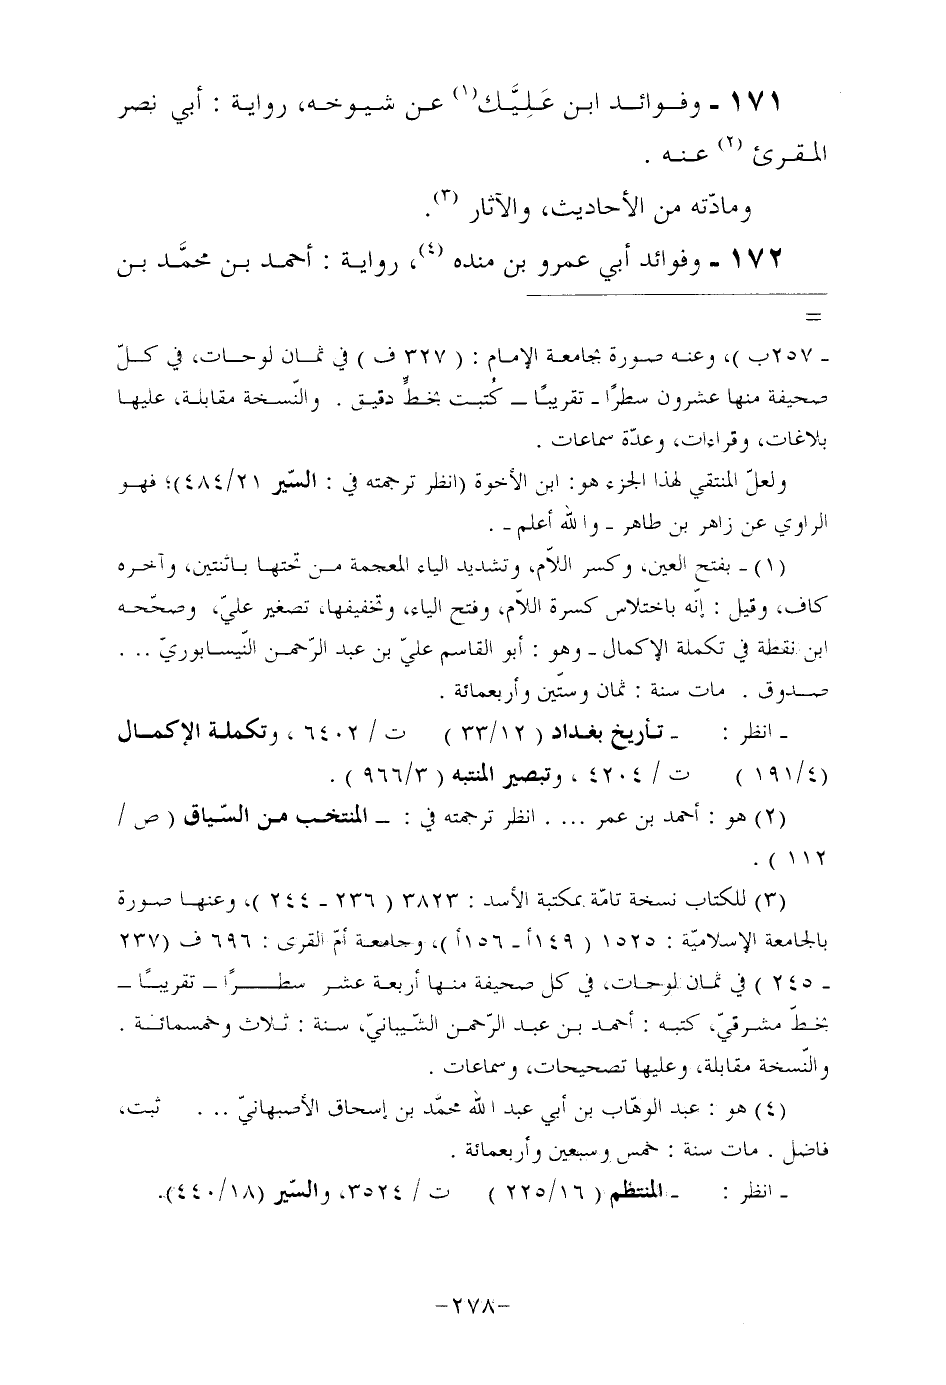 ١٧١ - وفوائد ابن عَلِيَّك(١) عن شيوخه، رواية : أبي نصر
المقرئ (٢) عنه .
ومادّته من الأحاديث، والآثار (٣).
١٧٢ - وفوائد أبي عمرو بن منده (٤)، رواية : أحمد بن محمَّد بن
=
- ٢٥٧ب )، وعنه صورة بجامعة الإمام : ( ٣٢٧ ف ) في ثمان لوحات، في كلّ
صحيفة منها عشرون سطرًا - تقريبًا – كُتبت بخطٍّ دقيق . والنّسخة مقابلة، عليها
بلاغات، وقراءات، وعدّة سماعات .
ولعلّ المنتقي لهذا الجزء هو: ابن الأخوة (انظر ترجمته في : السّير ٤٨٤/٢١)؛ فهو
الراوي عن زاهر بن طاهر - والله أعلم - .
(١) - بفتح العين، وكسر اللاّم، وتشديد الياء المعجمة من تحتها باثنتين، وآخره
كاف، وقيل : إنّه باختلاس كسرة اللاّم، وفتح الياء، وتخفيفها، تصغير عليّ، وصحّحه
ابن نقطة في تكملة الإكمال - وهو : أبو القاسم عليّ بن عبد الرّحمن النّيسابوريّ .. .
صدوق . مات سنة : ثمان وستّين وأربعمائة .
- انظر : - تأريخ بغداد ( ٣٣/١٢ ) ت / ٦٤٠٢ ، وتكملة الإكمال
(١٩١/٤ ) ت / ٤٢٠٤ ، وتبصير المنتبه ( ٩٦٦/٣ ) .
(٢) هو : أحمد بن عمر ... . انظر ترجمته في : – المنتخب من السّياق ( ص /
١١٢ ) .
(٣) للكتاب نسخة تامّة بمكتبة الأسد : ٣٨٢٣ ( ٢٣٦ - ٢٤٤ )، وعنها صورة
بالجامعة الإسلاميّة : ١٥٢٥ ( ١٤٩أ - ١٥٦أ )، وجامعة أمّ القرى : ٦٩٦ ف (٢٣٧
- ٢٤٥ ) في ثمان لوحات، في كل صحيفة منها أربعة عشر سطـــرًا – تقريبًا –
بخطّ مشرقيّ، كتبه : أحمد بن عبد الرّحمن الشّيبانيّ، سنة : ثلاث وخمسمائة .
والنّسخة مقابلة، وعليها تصحيحات، وسماعات .
(٤) هو : عبد الوهّاب بن أبي عبد الله محمّد بن إسحاق الأصبهانيّ .. . ثبت،
فاضل . مات سنة : خمس وسبعين وأربعمائة .
- انظر : - المنتظم ( ٢٢٥/١٦ ) ت / ٣٥٢٤، والسّير (٤٤٠/١٨).
-٢٧٨-